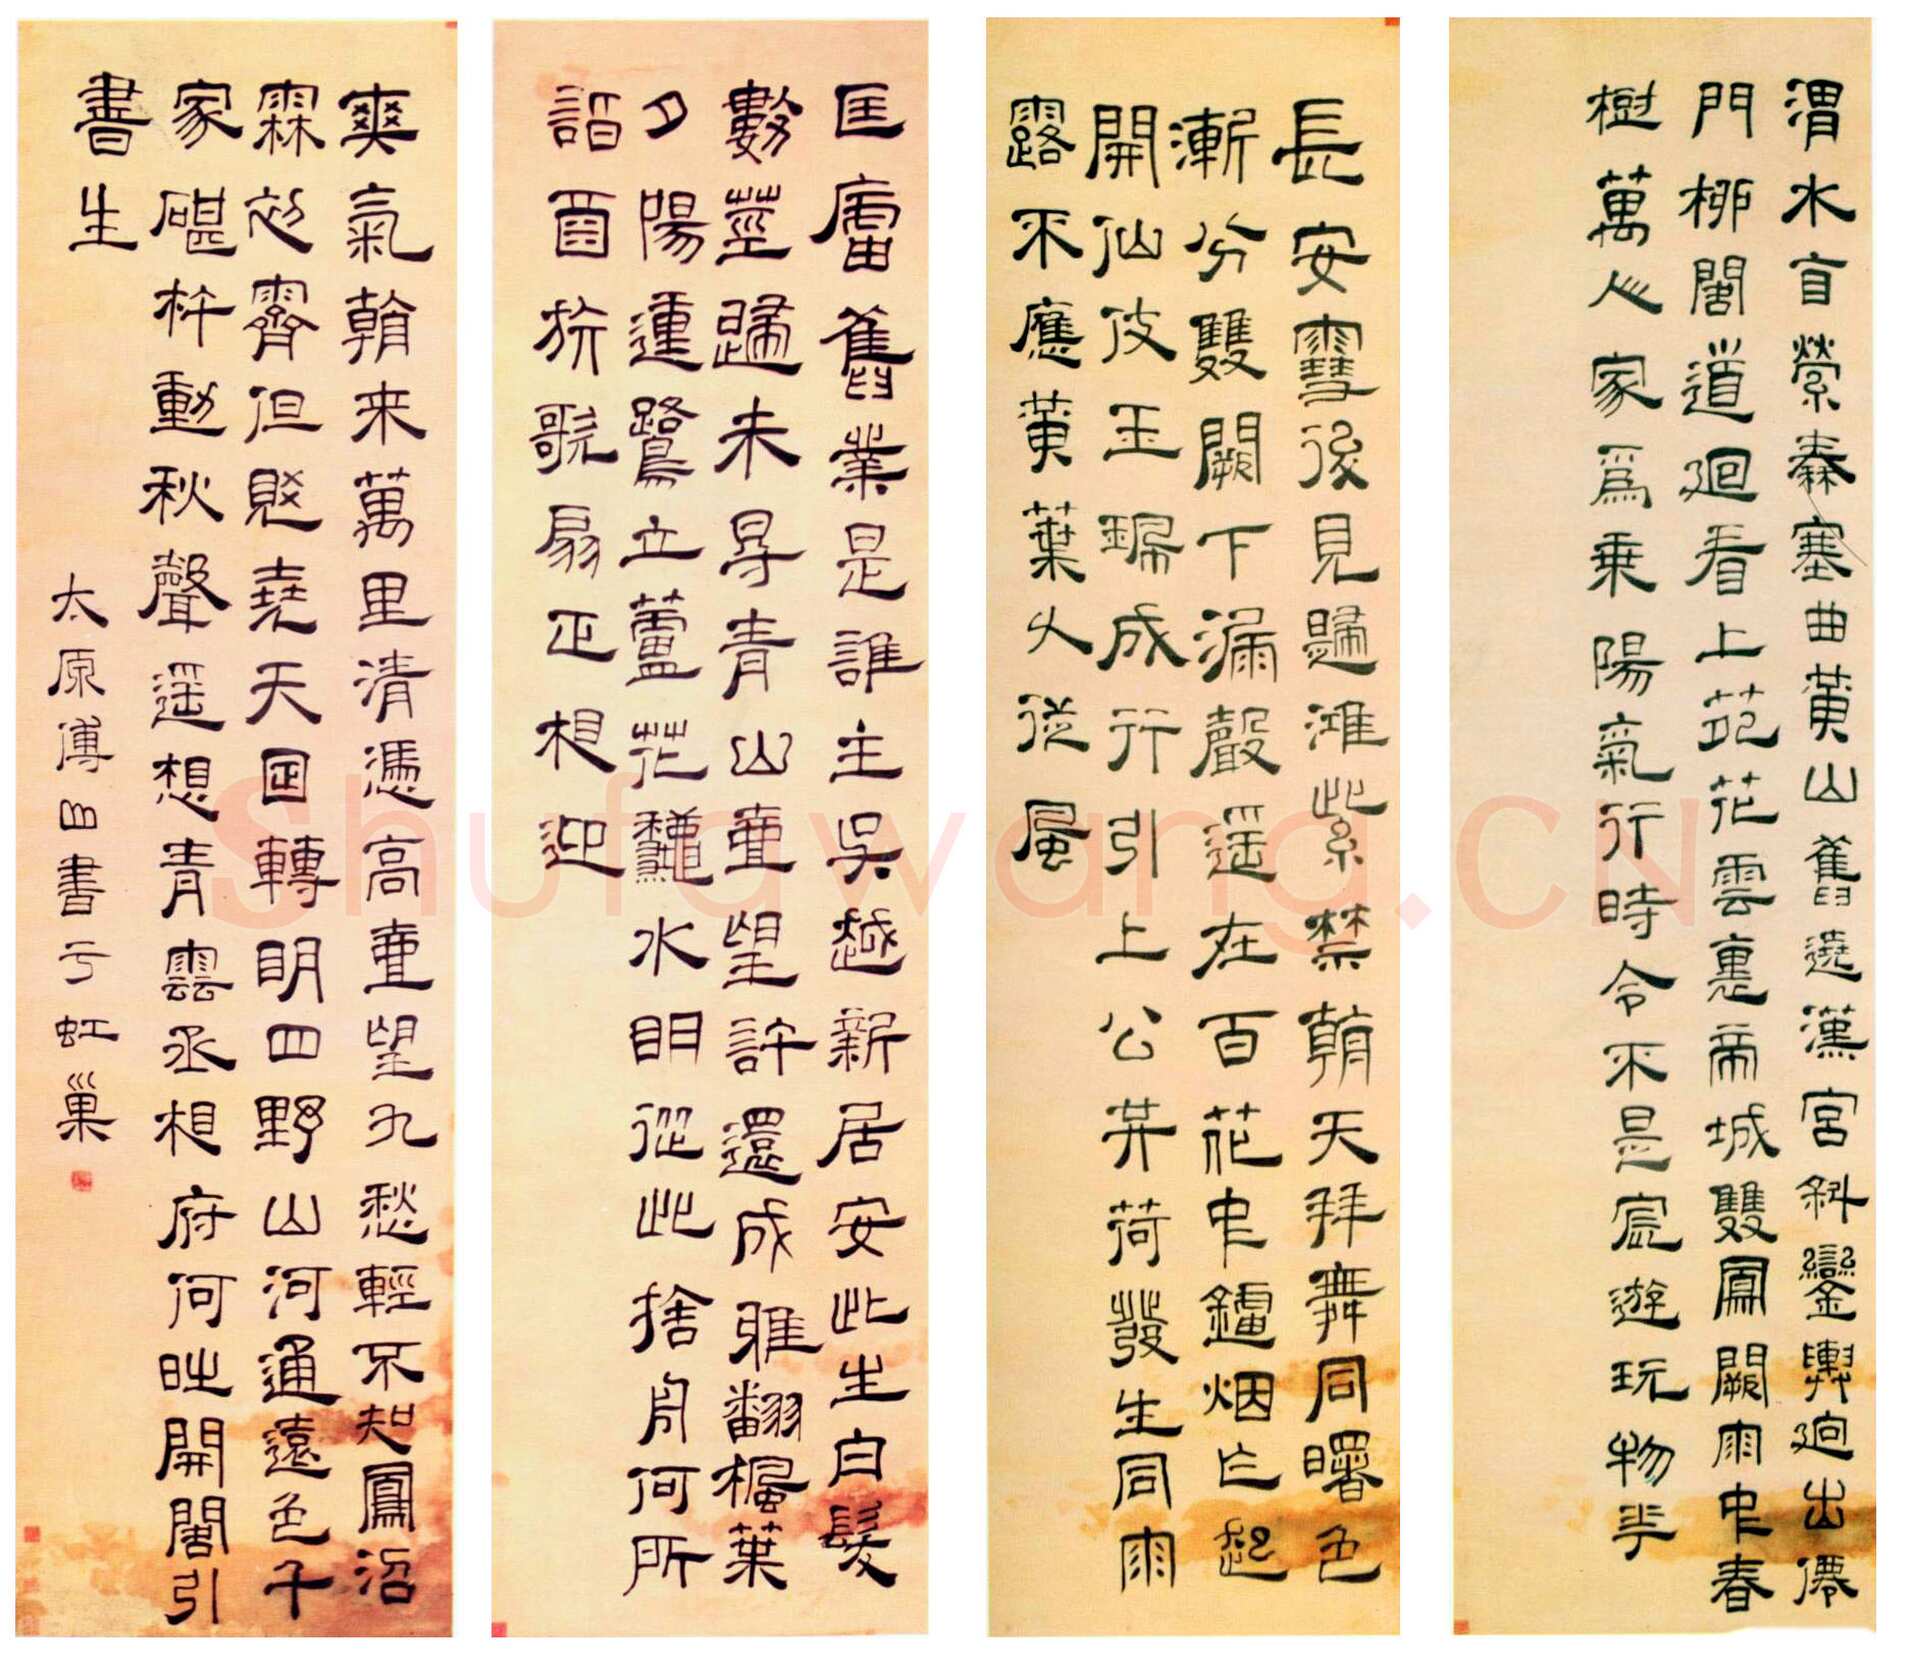 渭水自縈秦塞曲黃山舊遶漢宮斜鑾輿迥出僊
門柳閣道迴看上苑花雲裏帝城雙鳳闕雨中春
樹萬人家爲乘陽氣行時令不是宸遊玩物華
長安雪後見歸鴻紫禁朝天拜舞同曙色
漸分雙闕下漏聲遥在百花中鑪烟乍起
開仙仗玉珮成行引上公共荷發生同雨
露不應黃葉久從風
匡廬舊業是誰主吳越新居安此生白髮
數莖歸未得青山一望計還成雅翻楓葉
夕陽動鷺立蘆花秋水明從此捨舟何所
詣酒旂歌扇正相迎
爽氣朝来萬里清憑高一望九愁輕不知鳳沼
霖初霽但覺堯天日轉明四野山河通遠色千
家碪杵動秋聲遥想青雲丞相府何時開閣引
書生
太原傅山書于虹巢
Shufawang.CN